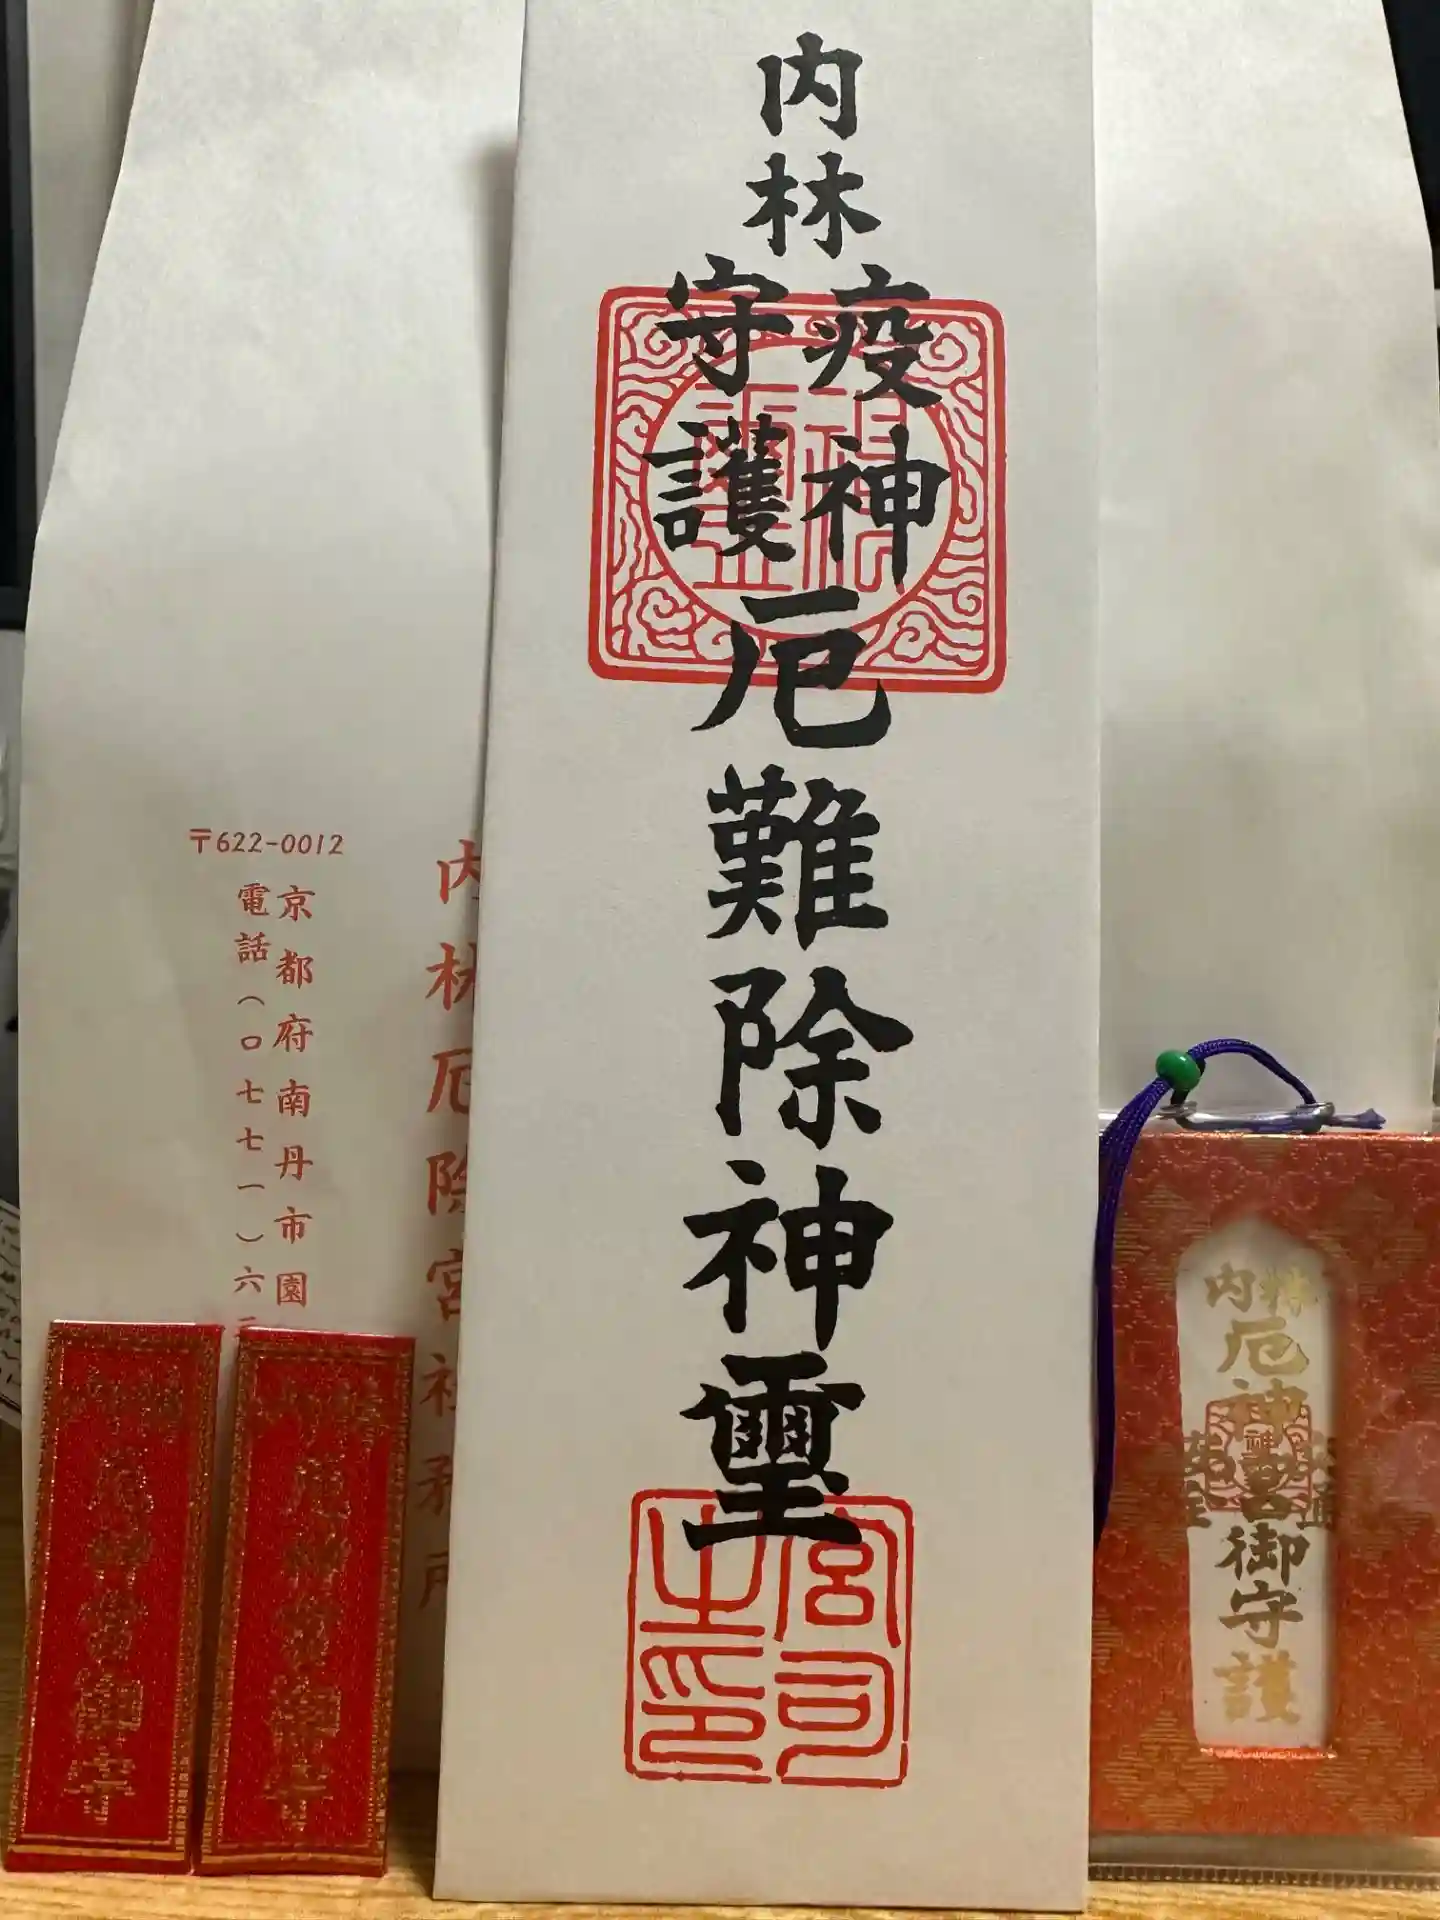 内林
疫神
守護
厄難除神璽
宮司
之印
〒622-0012
京都府南丹市園
電話(〇七七一)六二
内林厄除宮社務所
内林
厄神宮御守護
交通
安全